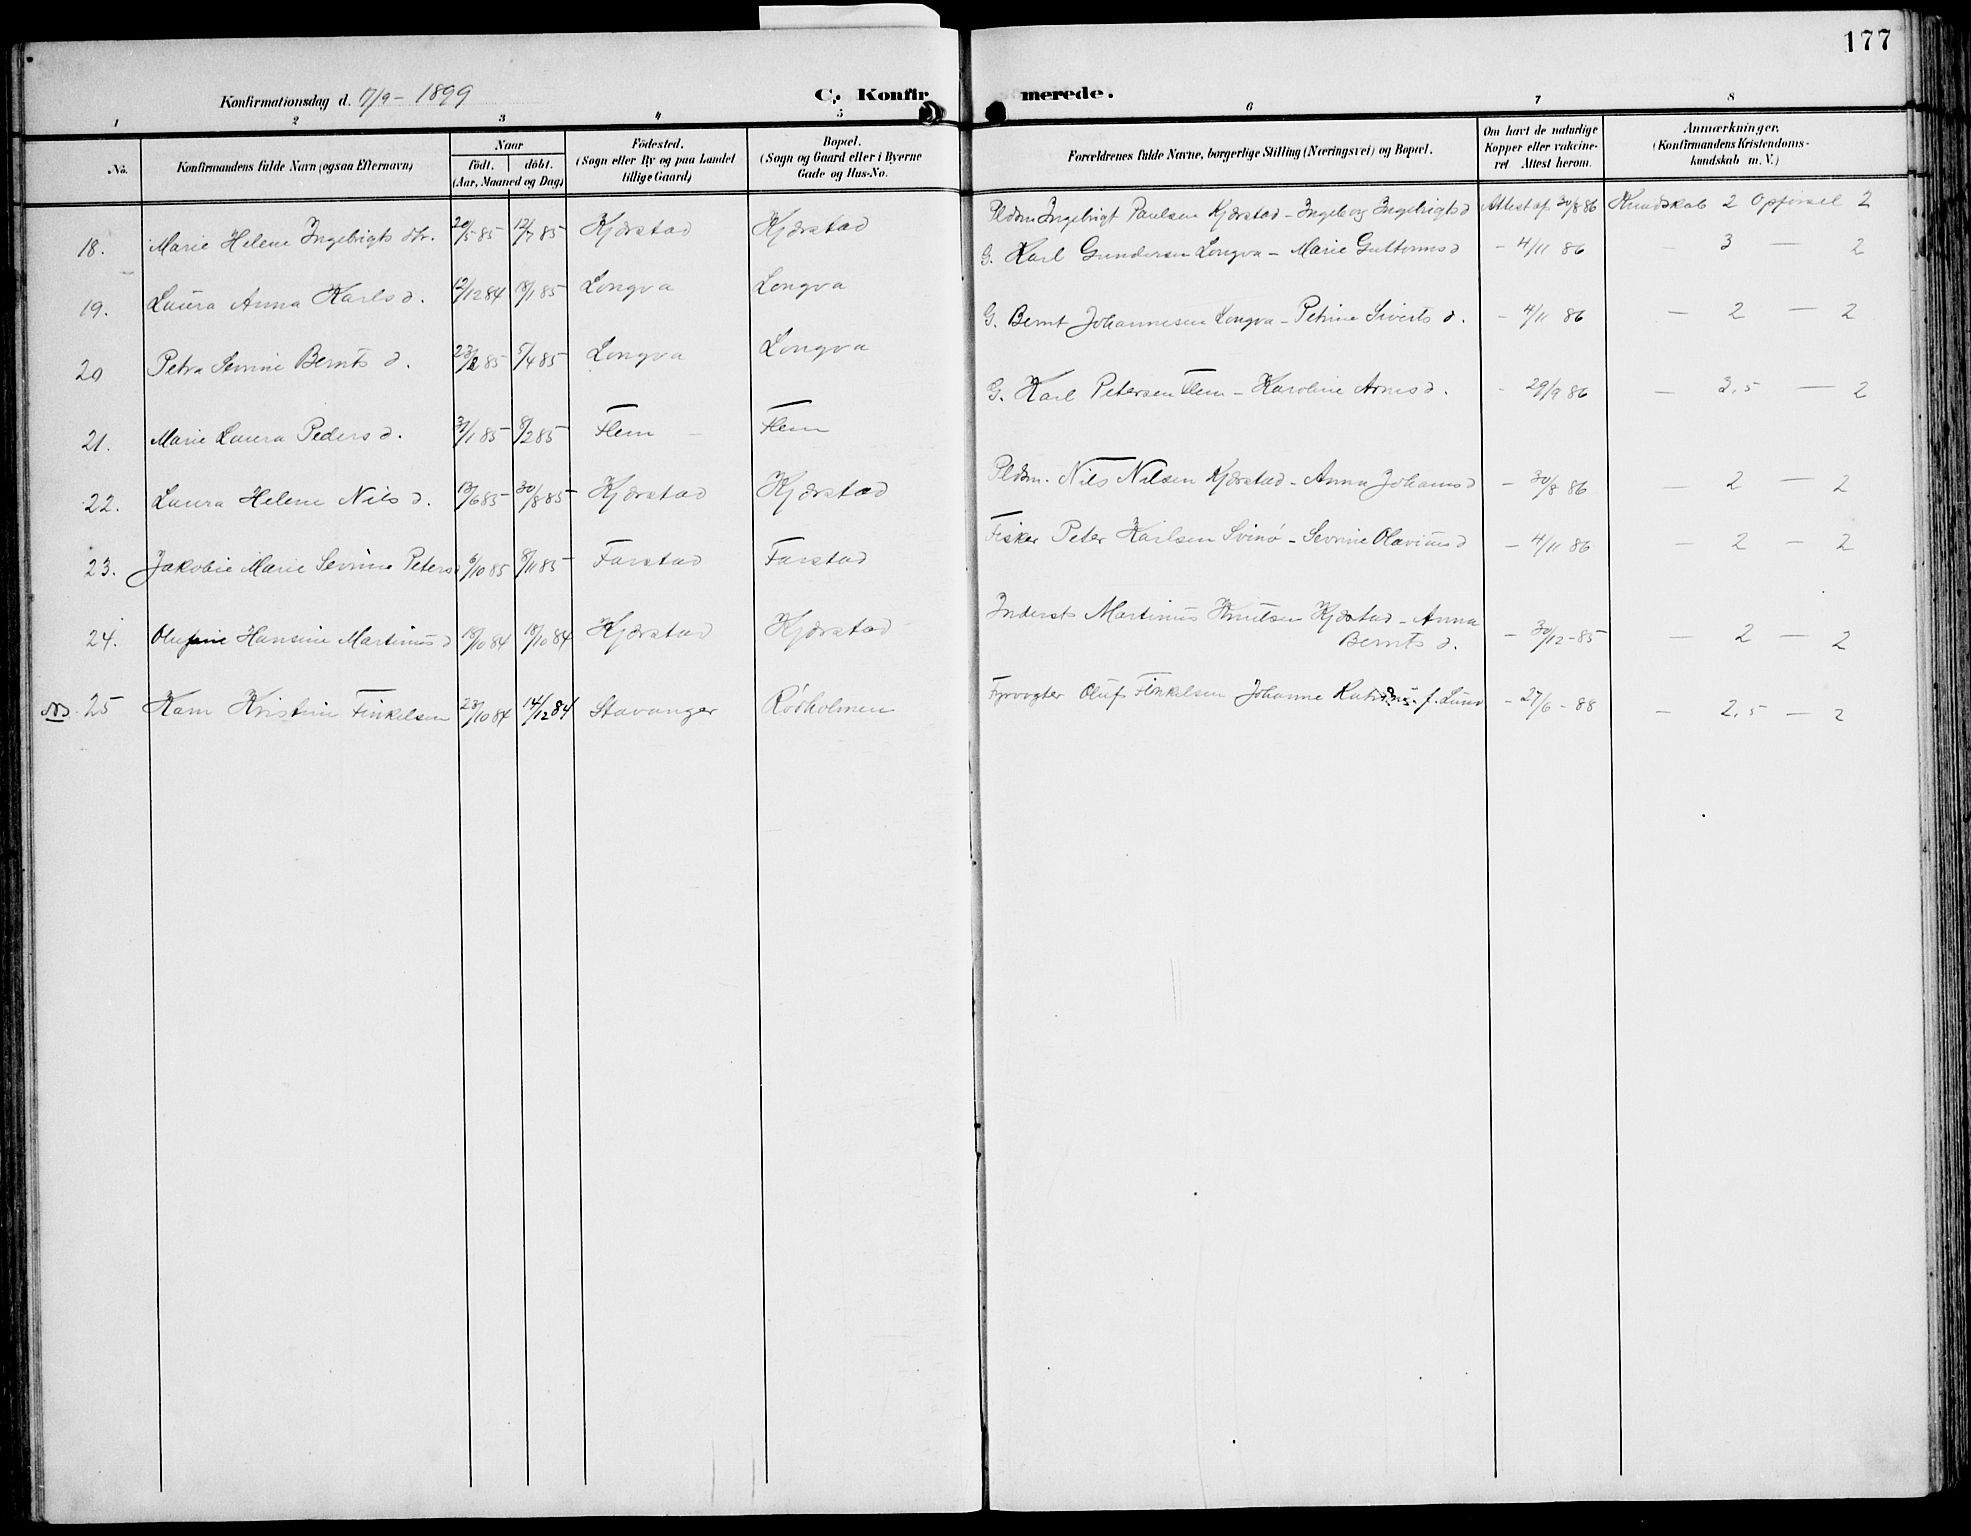 177
Konfirmationsdag d. 17/9 - 1899
C. Konfirmerede.
1 2 3 4 5 6 7 8
No.
Konfirmandens fulde Navn (ogsaa Efternavn)
Naar
födt. döbt.
(Aar, Maaned og Dag)
Födested.
(Sogn eller By og paa Landet
tillige Gaard)
Bopæl.
(Sogn og Gaard eller i Byerne
Gade og Hus-No.
Forældrenes fulde Navne, borgerlige Stilling (Næringsvei) og Bopæl.
Om havt de naturlige
Kopper eller vakcine-
ret Attest herom.
Anmærkninger.
(Konfirmandens Kristendoms-
kundskab m. V.)
18. Marie Helene Ingebrigts dtr. 20/5 85 12/7 85 Kjærstad Kjærstad Pldsm Ingebrigt Paulsen Kjærstad - Ingeborg Ingebrigts d Attest af 30/8 86 Kundskab 2 Opførsel 2
19. Laura Anna Karls d. 12/12 84 18/1 85 Longva Longva G. Karl Gundersen Longva - Marie Guttorms d - 4/11 86 - 3 - 2
20 Petra Sevrine Bernts d. 23/2 85 5/4 85 Longva Longva G. Bernt Johannesen Longva - Petrine Siverts d. - 4/11 86 - 2 - 2
21. Marie Laura Peders d. 3/1 85 8/2 85 Flem Flem G. Karl Petersen Flem - Karoline Arnes d. - 29/9 86 - 3,5 - 2
22. Laura Helene Nils d. 13/6 85 30/8 85 Kjærstad Kjærstad Pldsm. Nils Nilsen Kjærstad - Anna Johans d - 30/8 86 - 2 - 2
23. Jakobie Marie Sevrine Peters d 6/10 85 8/11 85 Farstad Farstad Fisker Peter Karlsen Svinø - Sevrine Olavius d - 4/11 86 - 2 - 2
24. Olufine Hansine Martinus d 18/10 84 18/10 84 Kjærstad Kjærstad Inderst Martinus Knutsen Kjærstad - Anna
Bernts d. - 30/12 - 85 - 2 - 2
25 Kam Kristine Finkelsen 23/10 84 14/12 84 Stavanger Rødholmen Fyrvogter Oluf Finkelsen Johanne f. Lund - 27/6 - 88 - 2,5 - 2